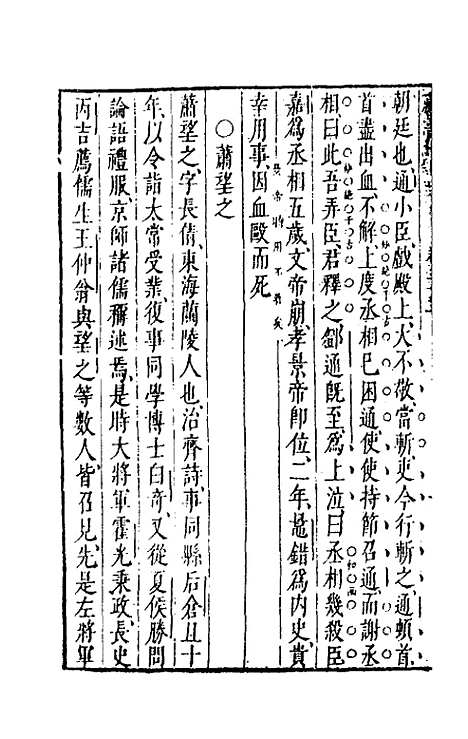 朝廷也通小臣戲殿上大不敬當斬吏今行斬之通頓首
首盡出血不解上度丞相已困通使使持節召通而謝丞
相曰此吾弄臣君釋之鄧通既至爲上泣曰丞相幾殺臣
嘉爲丞相五歲文帝崩孝景帝即位二年鼂錯爲内史貴
幸用事因血毆而死
○蕭望之
蕭望之字長倩東海蘭陵人也治齊詩事同縣后倉且十
年以令詣太常受業復事同學博士白奇又從夏侯勝問
論語禮服京師諸儒稱述焉是時大將軍霍光秉政長史
丙吉薦儒生王仲翁與望之等數人皆召見先是左將軍